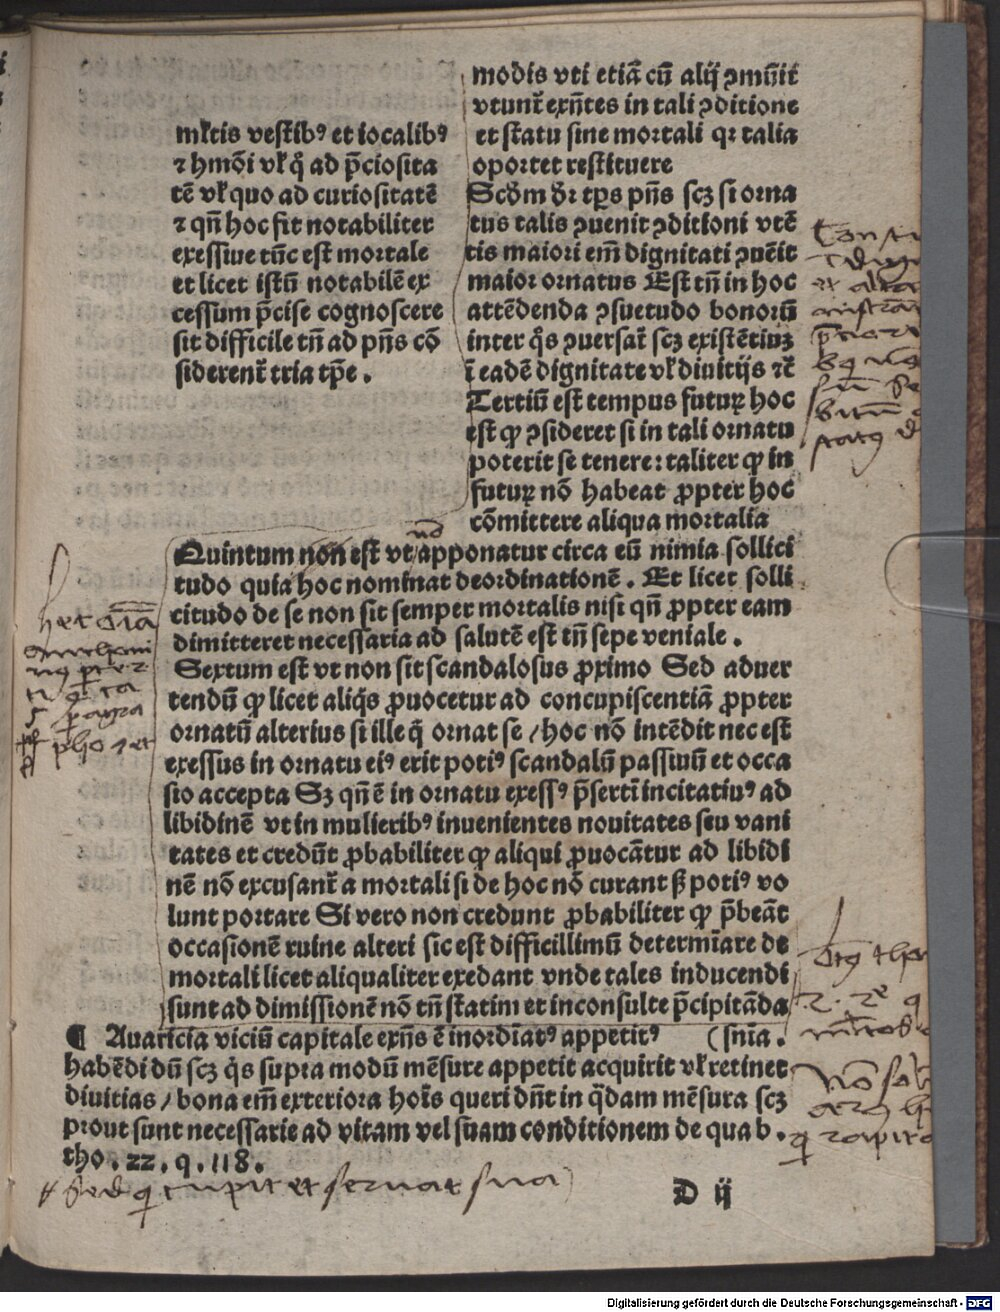 mĺtis vestibꝰ et iocalibꝰ
⁊ hmōi vĺ q̊ ad p̄ciosita
tē vĺ quo ad curiositatē
⁊ qn̄ hoc fit notabiliter
exessiue tūc est mortale
et licet istū notabilē ex
cessum p̄cise cognoscere
sit difficile tn̄ ad pn̄s cō
siderent᷑ tria tp̄e.
modis vti etiā cū alij ꝯmūit᷑
vtunt᷑ exn̄tes in tali ꝯditione
et statu sine mortali qꝛ talia
oportet restituere
Scd̄m dr̄ tp̄s pn̄s scꝫ si orna
tus talis ꝯuenit ꝯditioni vtē
tis maiori em̄ dignitati ꝯuēit
maior ornatus Est tn̄ in hoc
attēdenda ꝯsuetudo bonorū
inter q̊s ꝯuersat᷑ scꝫ existētiuꝫ
ī eadē dignitate vĺ diuitijs ⁊c̄
Tertiū est tempus futuꝝ hoc
est ꝙ ꝯsideret si in tali ornatu
poterit se tenere: taliter ꝙ in
futuꝝ nō habeat ꝓpter hoc
cōmittere aliqua mortalia
Quintum non est vt apponatur circa eū nimia sollici
tudo quia hoc nominat deordinationē. Et licet solli
citudo de se non sit semper mortalis nisi qn̄ ꝓpter eam
dimitteret necessaria ad salutē est tn̄ sepe veniale.
Sextum est vt non sit scandalosus ꝓximo Sed aduer
tendū ꝙ licet aliq̊s ꝓuocetur ad concupiscentiā ꝓpter
ornatū alterius si ille q̇ ornat se / hoc nō intēdit nec est
exessus in ornatu eiꝰ erit potiꝰ scandalū passiuū et occa
sio accepta Sꝫ qn̄ ē in ornatu exessꝰ p̄sertī incitatiuꝰ ad
libidinē vt in mulieribꝰ inuenientes nouitates seu vani
tates et credūt ꝓbabiliter ꝙ aliqui ꝓuocātur ad libidi
nē nō excusant᷑ a mortali si de hoc nō curant ꝭꝫ potiꝰ vo
lunt portare Si vero non credunt ꝓbabiliter ꝙ p̄beāt
occasionē ruine alteri sic est difficillimū determīare de
mortali licet aliqualiter exedant vnde tales inducendi
sunt ad dimissionē nō tn̄ statim et inconsulte p̄cipitāda
¶ Auaricia viciū capitale exn̄s ē inordīatꝰ appetitꝰ (snīa.
habēdi dū scꝫ q̊s supra modū mēsure appetit acquirit vĺ retinet
diuitias / bona em̄ exteriora hoīs queri dn̄t in q̄dam mēsura scꝫ
prout sunt necessarie ad vitam vel suam conditionem de qua b.
tho. 22. q. 118.
D ij
Digitalisierung gefördert durch die Deutsche Forschungsgemeinschaft - DFG